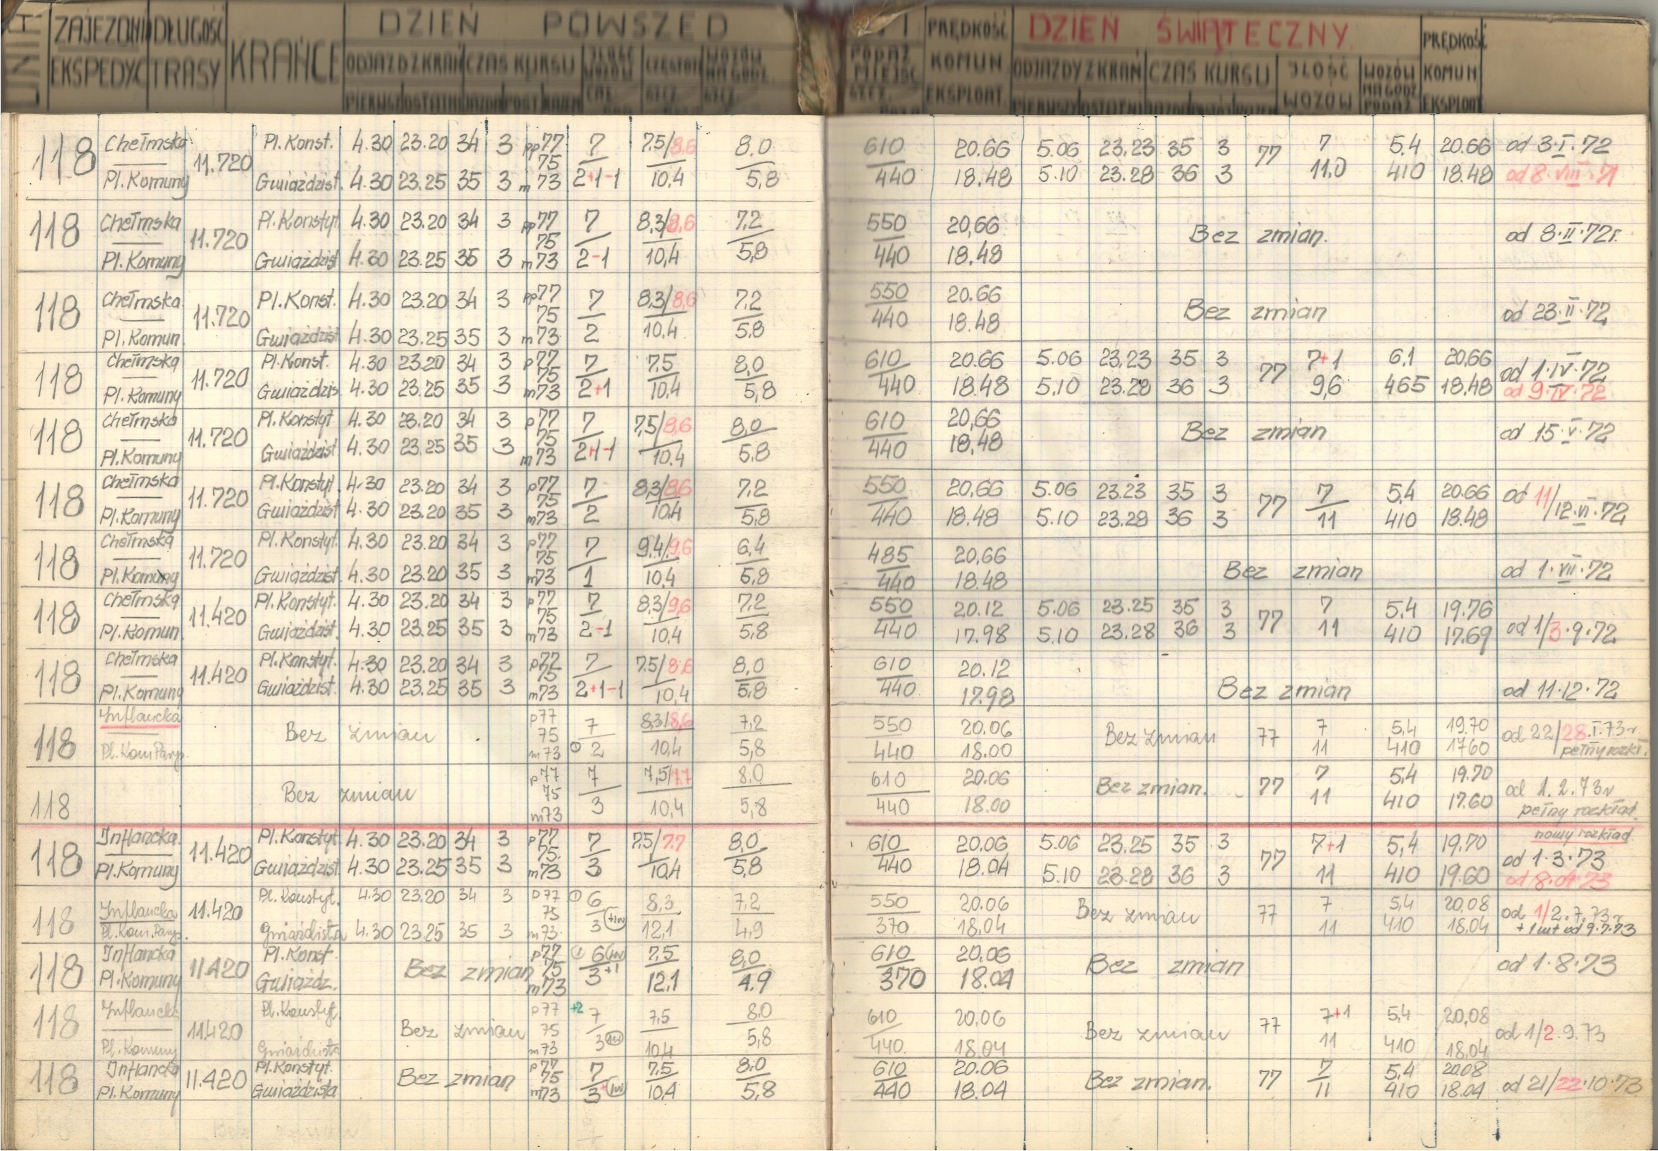 LINIA ZAJEZDNIA DŁUGOŚĆ KRAŃCE DZIEŃ POWSZED PRĘDKOŚĆ DZIEŃ ŚWIĄTECZNY PRĘDKOŚĆ
EKSPEDYC TRASY ODJAZD Z KRAŃ CZAS KURSU ILOŚĆ WOZÓW PODAŻ MIEJSC KOMUN ODJAZDY Z KRAŃ CZAS KURSU ILOŚĆ WOZÓW KOMUN
EKSPLOAT. EKSPLOAT.
118 Chełmska 11.720 Pl. Konst. 4.30 23.20 34 3 pp77 7 7,5/8,6 8,0 610 20.66 5.06 23.23 35 3 77 7 5,4 20.66 od 3·I·72
75
Pl. Komuny Gwiaździst. 4.30 23.25 35 3 m73 2+1-1 10,4 5,8 440 18.48 5.10 23.28 36 3 11,0 410 18.48 od 8·VIII·71
118 Chełmska 11.720 Pl. Konstyt. 4.30 23.20 34 3 pp77 7 8,3/8,6 7,2 550 20,66 Bez zmian. od 8·II·72r.
75
Pl. Komuny Gwiaździst 4.30 23.25 35 3 m73 2-1 10,4 5,8 440 18.48
118 Chełmska 11.720 Pl. Konst. 4.30 23.20 34 3 pp77 7 8,3/8,6 7,2 550 20.66 Bez zmian od 23·II·72
75
Pl. Komun. Gwiaździst 4.30 23.25 35 3 m73 2 10,4 5,8 440 18.48
118 Chełmska 11.720 Pl. Konst. 4.30 23.20 34 3 p77 7 7,5 8,0 610 20.66 5.06 23.23 35 3 77 7+1 6,1 20,66 od 1·IV·72
75
Pl. Komuny Gwiaździs 4.30 23.25 35 3 m73 2+1 10,4 5,8 440 18.48 5,10 23.28 36 3 9,6 465 18,48 od 9·IV·72
118 Chełmska 11.720 Pl. Konstyt 4.30 23.20 34 3 p77 7 7,5/8,6 8,0 610 20,66 Bez zmian od 15·V·72
75
Pl. Komuny Gwiaździst 4.30 23.25 35 3 m73 2+1-1 10.4 5.8 440 18,48
118 Chełmska 11.720 Pl. Konstyt. 4.30 23.20 34 3 p77 7 8,3/8,6 7,2 550 20,66 5.06 23.23 35 3 77 7 5,4 20.66 od 11/12·VI·72
75
Pl. Komuny Gwiaździst 4.30 23.20 35 3 m73 2 10,4 5,8 440 18.48 5.10 23.28 36 3 11 410 18.48
118 Chełmska 11.720 Pl. Konstyt. 4.30 23.20 34 3 p77 7 9,4/9,6 6,4 485 20,66 Bez zmian od 1·VII·72
75
Pl. Komuny Gwiaździst 4.30 23.20 35 3 m73 1 10,4 5,8 440 18.48
118 Chełmska 11.420 Pl. Konstyt. 4.30 23.20 34 3 p77 7 8,3/9,6 7,2 550 20.12 5.06 23.25 35 3 77 7 5,4 19.76 od 1/3·9·72
75
Pl. Komun. Gwiaździst. 4.30 23.25 35 3 m73 2-1 10,4 5,8 440 17.98 5.10 23.28 36 3 11 410 17.69
118 Chełmska 11.420 Pl. Konstyt. 4.30 23.20 34 3 p77 7 7,5/8,6 8,0 610 20.12 Bez zmian od 11·12·72
75
Pl. Komuny Gwiaździst. 4.30 23.25 35 3 m73 2+1-1 10,4 5,8 440 17.98
118 Inflancka Bez zmian p77 7 8,3/8,6 7,2 550 20.06 Bez zmian 77 7 5,4 19.70 od 22/28.I.73r
75
Pl. Kom. Paryp. m73 2 10,4 5,8 440 18.00 11 410 17.60 pełny rozkł.
118 Bez zmian p77 7 7,5/7,7 8.0 610 20.06 Bez zmian. 77 7 5,4 19.70 od 1.2.73r
75
m73 3 10,4 5,8 440 18.00 11 410 17.60 pełny rozkład.
nowy rozkład
118 Inflancka 11.420 Pl. Konstyt. 4.30 23.20 34 3 p77 7 7,5/7,7 8,0 610 20.06 5.06 23.25 35 3 77 7+1 5,4 19,70 od 1·3·73
75
Pl. Komuny Gwiaździst 4.30 23.25 35 3 m73 3 10,4 5,8 440 18.04 5.10 23.28 36 3 11 410 19.60 od 8·04·73
118 Inflancka 11.420 Pl. Konstyt. 4.30 23.20 34 3 p77 6 8,3 7,2 550 20.06 Bez zmian 77 7 5,4 20,08 od 1/2.7.73r
75
Pl. Kom. Paryp. Gwiaździsta 4.30 23.25 35 3 m73 3 12,1 4,9 370 18,04 11 410 18.04 + 1 wt od 9.7.73
118 Inflancka 11.420 Pl. Konst. Bez zmian p77 6 7,5 8,0 610 20.06 Bez zmian od 1·8·73
75
Pl. Komuny Gwiaźdz. m73 3+1 12,1 4.9 370 18.04
118 Inflancka 11.420 Pl. Konstyt. Bez zmian p77 +2 7 7,5 8,0 610 20,06 Bez zmian 77 7+1 5,4 20,08 od 1/2.9.73
75
Pl. Komuny Gwiaździsta m73 3 10,4 5,8 440 18.04 11 410 18,04
118 Inflancka 11.420 Pl. Konstyt. Bez zmian p77 7 7,5 8,0 610 20.06 Bez zmian. 77 7 5,4 20.08 od 21/22·10·73
75
Pl. Komuny Gwiaździsta m73 3 10,4 5,8 440 18.04 11 410 18.04